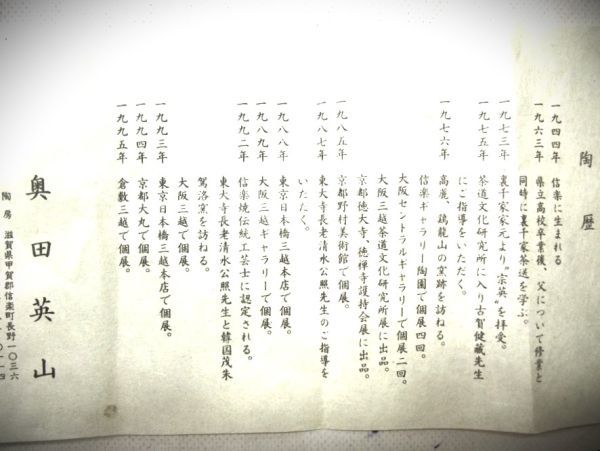 陶歴
一九四四年 信楽に生まれる
一九六三年 県立高校卒業後、父について修業と
同時に裏千家茶道を学ぶ。
一九七三年 裏千家家元より“宗英”を拝受。
一九七五年 茶道文化研究所に入り古賀健蔵先生
にご指導をいただく。
一九七六年 高麗、鶏龍山の窯跡を訪ねる。
信楽ギャラリー陶園で個展四回。
大阪セントラルギャラリーで個展二回。
大阪三越茶道文化研究所展に出品。
京都徳大寺・徳禅寺護持会展に出品。
一九八五年 京都野村美術館で個展。
一九八七年 東大寺長老清水公照先生のご指導を
いただく。
一九八八年 東京日本橋三越本店で個展。
一九八九年 大阪三越ギャラリーで個展。
一九九二年 信楽焼伝統工芸士に認定される。
東大寺長老清水公照先生と韓国茂朱
駕洛窯を訪ねる。
大阪三越で個展。
一九九三年 東京日本橋三越本店で個展。
一九九四年 京都大丸で個展。
一九九五年 倉敷三越で個展。
奥田英山
陶房 滋賀県甲賀郡信楽町長野一〇三六